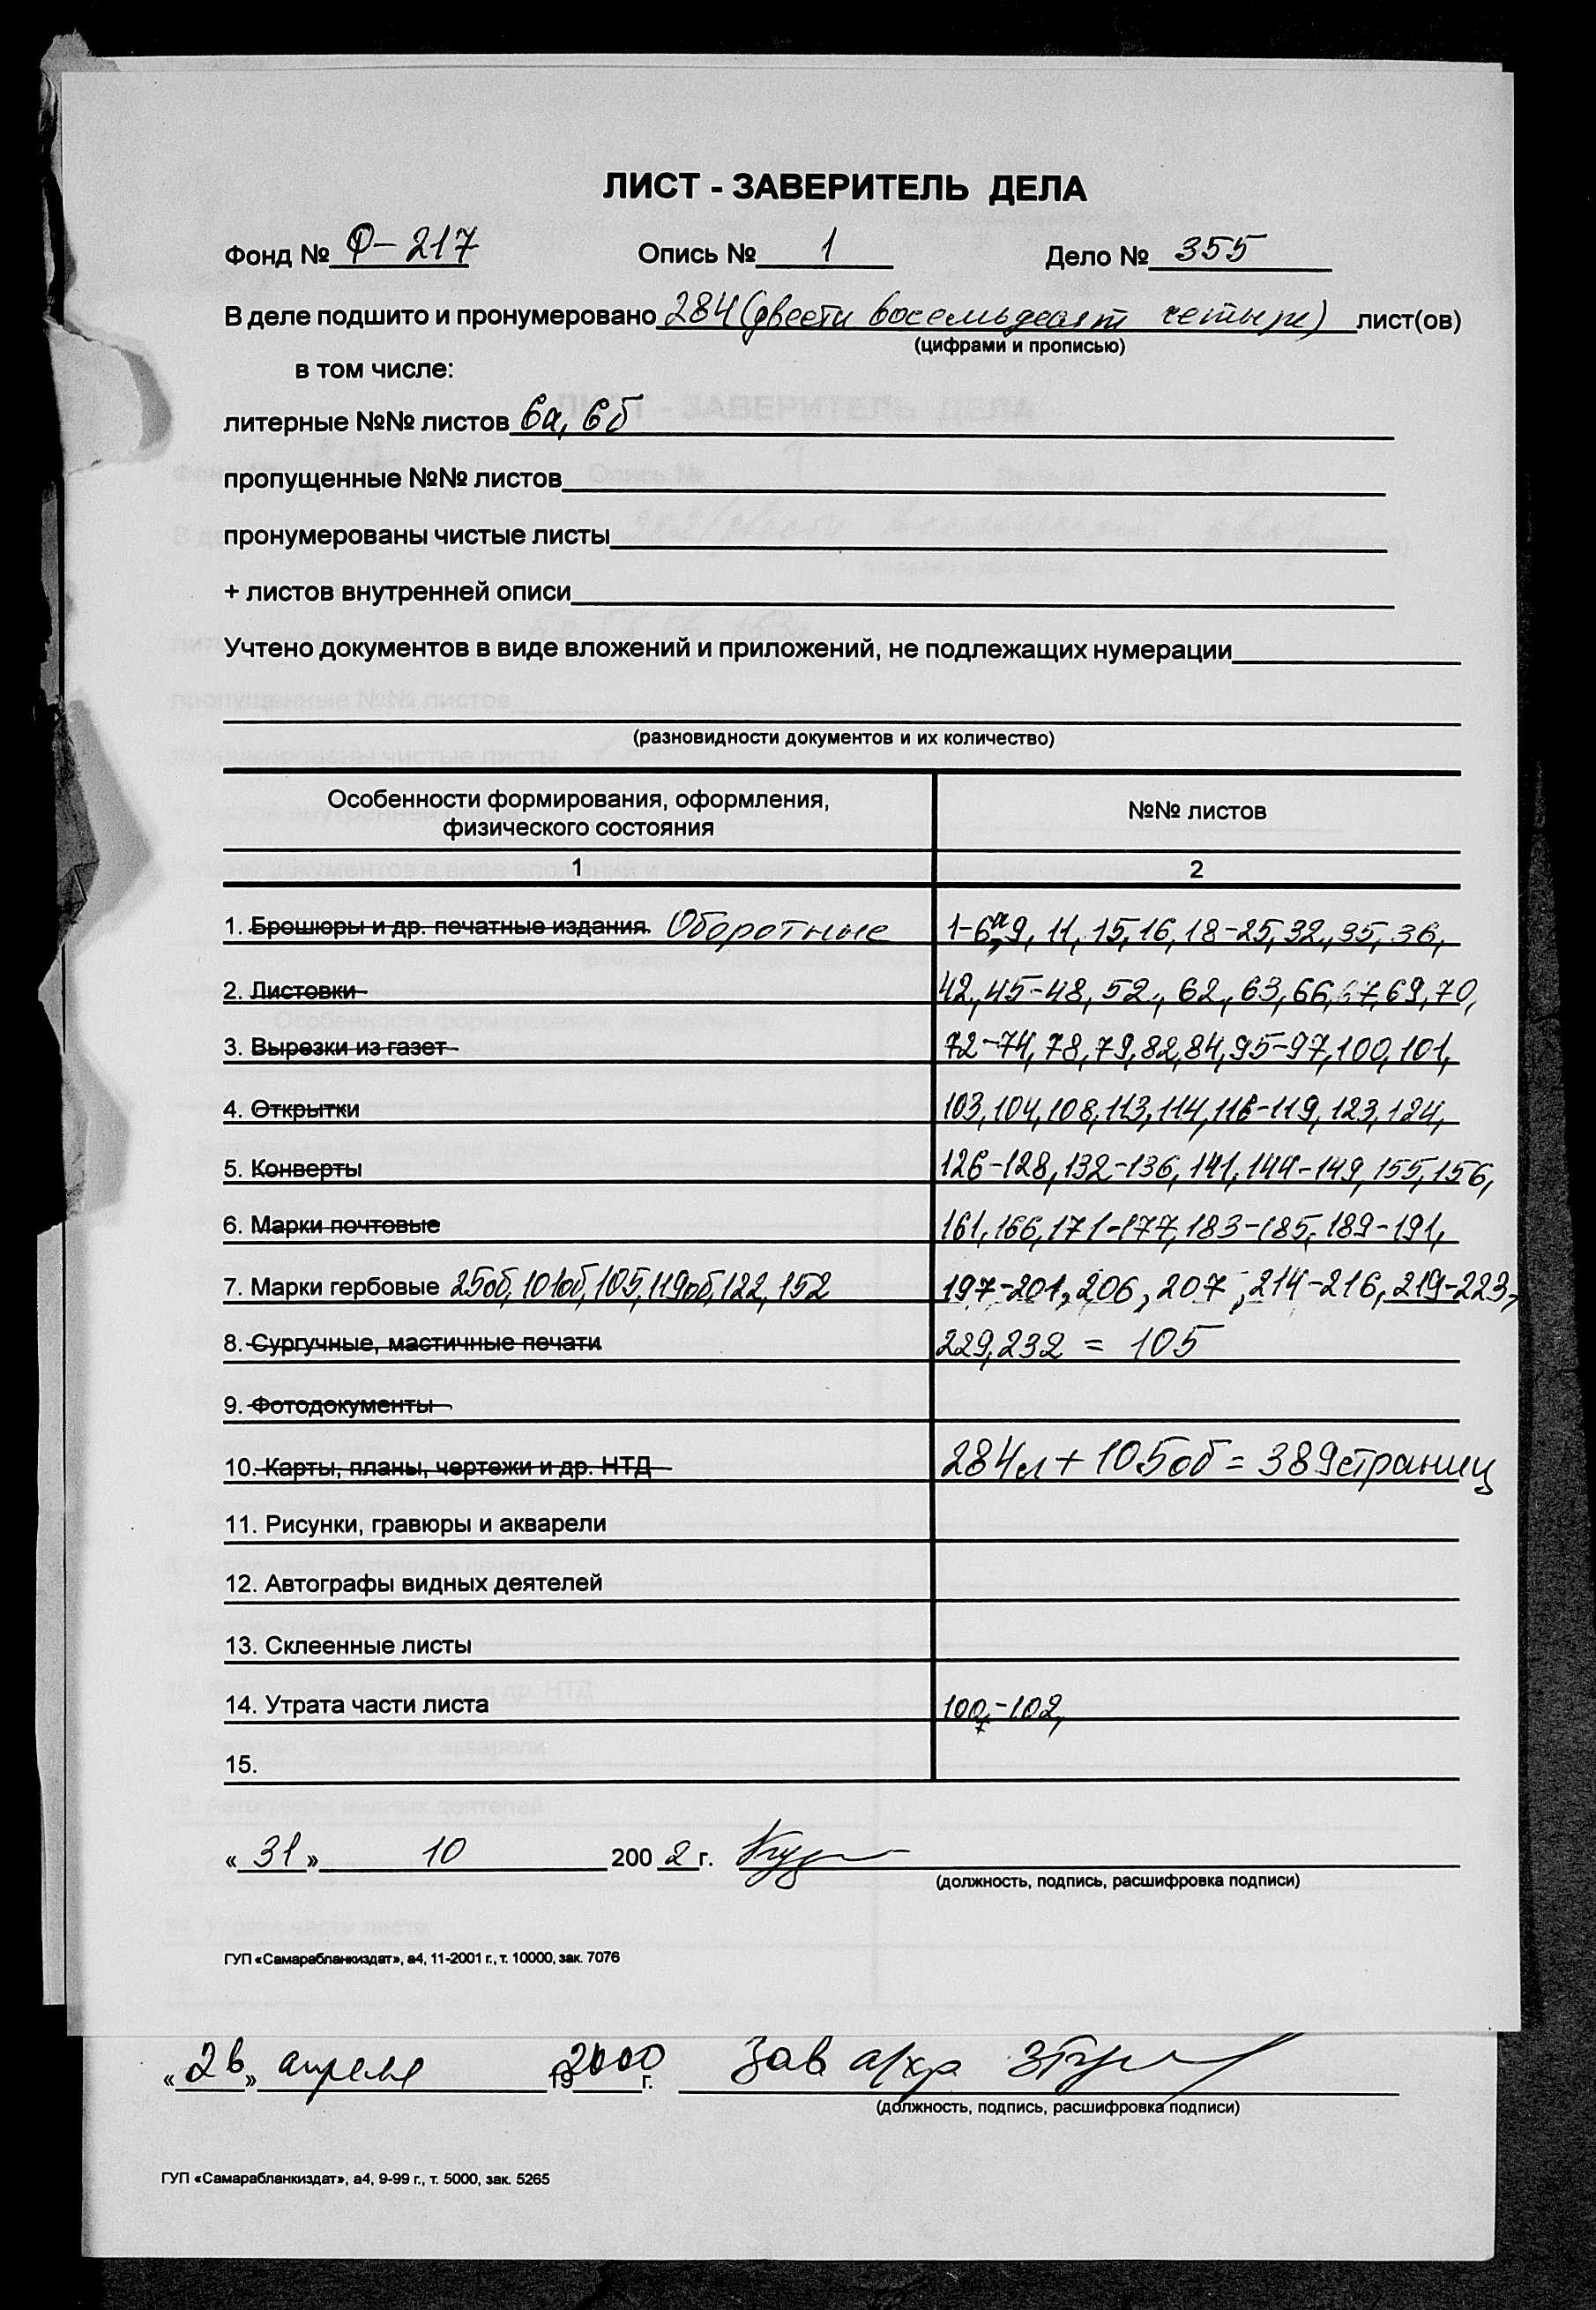 ЛИСТ - ЗАВЕРИТЕЛЬ ДЕЛА
Фонд № Ф-217 Опись № 1 Дело № 355
В деле подшито и пронумеровано 284 (двести восемьдесят четыре) лист(ов)
(цифрами и прописью)
в том числе:
литерные №№ листов 6а, 6б
пропущенные №№ листов
пронумерованы чистые листы
+ листов внутренней описи
Учтено документов в виде вложений и приложений, не подлежащих нумерации
(разновидности документов и их количество)
Особенности формирования, оформления, физического состояния №№ листов
1 2
1. Брошюры и др. печатные издания. Оборотные 1-6а, 9, 11, 15, 16, 18-25, 32, 35, 36,
2. Листовки 42, 45-48, 52, 62, 63, 66, 67, 69, 70,
3. Вырезки из газет 72-74, 78, 79, 82, 84, 95-97, 100, 101,
4. Открытки 103, 104, 108, 113, 114, 116-119, 123, 124,
5. Конверты 126-128, 132-136, 141, 144-149, 155, 156,
6. Марки почтовые 161, 166, 171-177, 183-185, 189-191,
7. Марки гербовые 25об, 101об, 105, 119об, 122, 152 197-201, 206, 207, 214-216, 219-223,
8. Сургучные, мастичные печати 229, 232 = 105
9. Фотодокументы
10. Карты, планы, чертежи и др. НТД 284л + 105об = 389 страниц
11. Рисунки, гравюры и акварели
12. Автографы видных деятелей
13. Склеенные листы
14. Утрата части листа 100,-102,
15.
«31» 10 2002 г.
(должность, подпись, расшифровка подписи)
ГУП «Самарабланкиздат», а4, 11-2001 г., т. 10000, зак. 7076
«26» апреля 2000 г. Зав арх
(должность, подпись, расшифровка подписи)
ГУП «Самарабланкиздат», а4, 9-99 г., т. 5000, зак. 5265